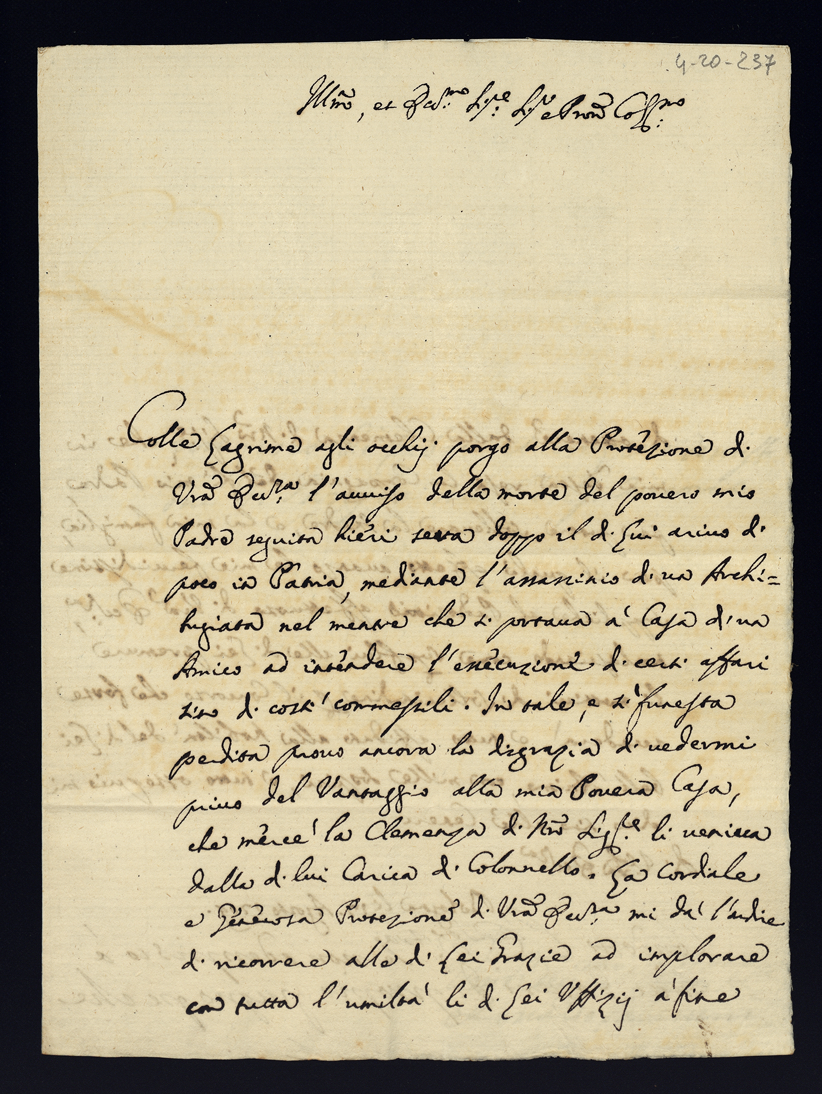 4-20-237
Illmo, et Eccmo Sigre Sigre e Prone Colmo
Colle Lagrime agli occhij porgo alla Protezione di
Vra Eccza l'auuiso della morte del pouero mio
Padre seguita hieri sera doppo il di Lui ariuo di
poco in Patria, mediante l'assassinio di un Archi=
bugiata nel mentre che si portaua a' Casa di un
Amico ad intendere l'essecuzione di certi affari
sino di costi' commessili. In tale, e si' funesta
perdita prouo ancora la disgrazia di uedermi
priuo del Vantaggio alla mia Pouera Casa,
che merce' la Clemenza di Nro Sigre li ueniua
dalla di lui Carica di Colonnello. La Cordiale
e Generosa Protezione di Vra Eccza mi da' l'ardire
di ricorrere alle di Lei Grazie ad implorare
con tutta l'umiltà li di Lei Uffizij a' fine